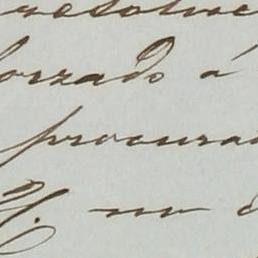 resolve
forzado á
procura
H. no